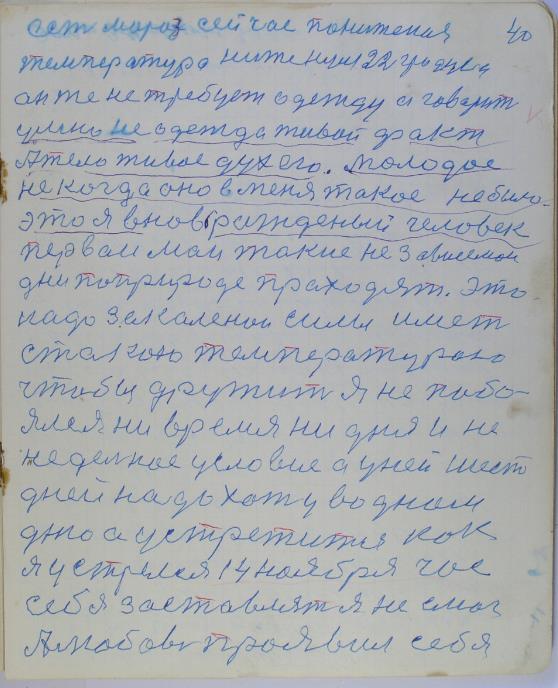 ест мороз сейчас понижения 40
температура ниже нуля 22 градуса
он же не требует одежду а говарит
умно не одежда живой факт
А тело живое дух его. молодое
не когда оно в меня такое небыло
это я вновь рожденый человек
первом мои такие не зависемои
дни поприроде праходят. Это
надо закаленои силы имет
стакою температурою
чтобы дружит я не побо-
ялся ни время ни дня и не
неделное условие а у ней шест
дней надо хожу водном
дно а устретится как
я устрелся 14 ноября час
себя заставлят я не смог
А любовь проявил себя